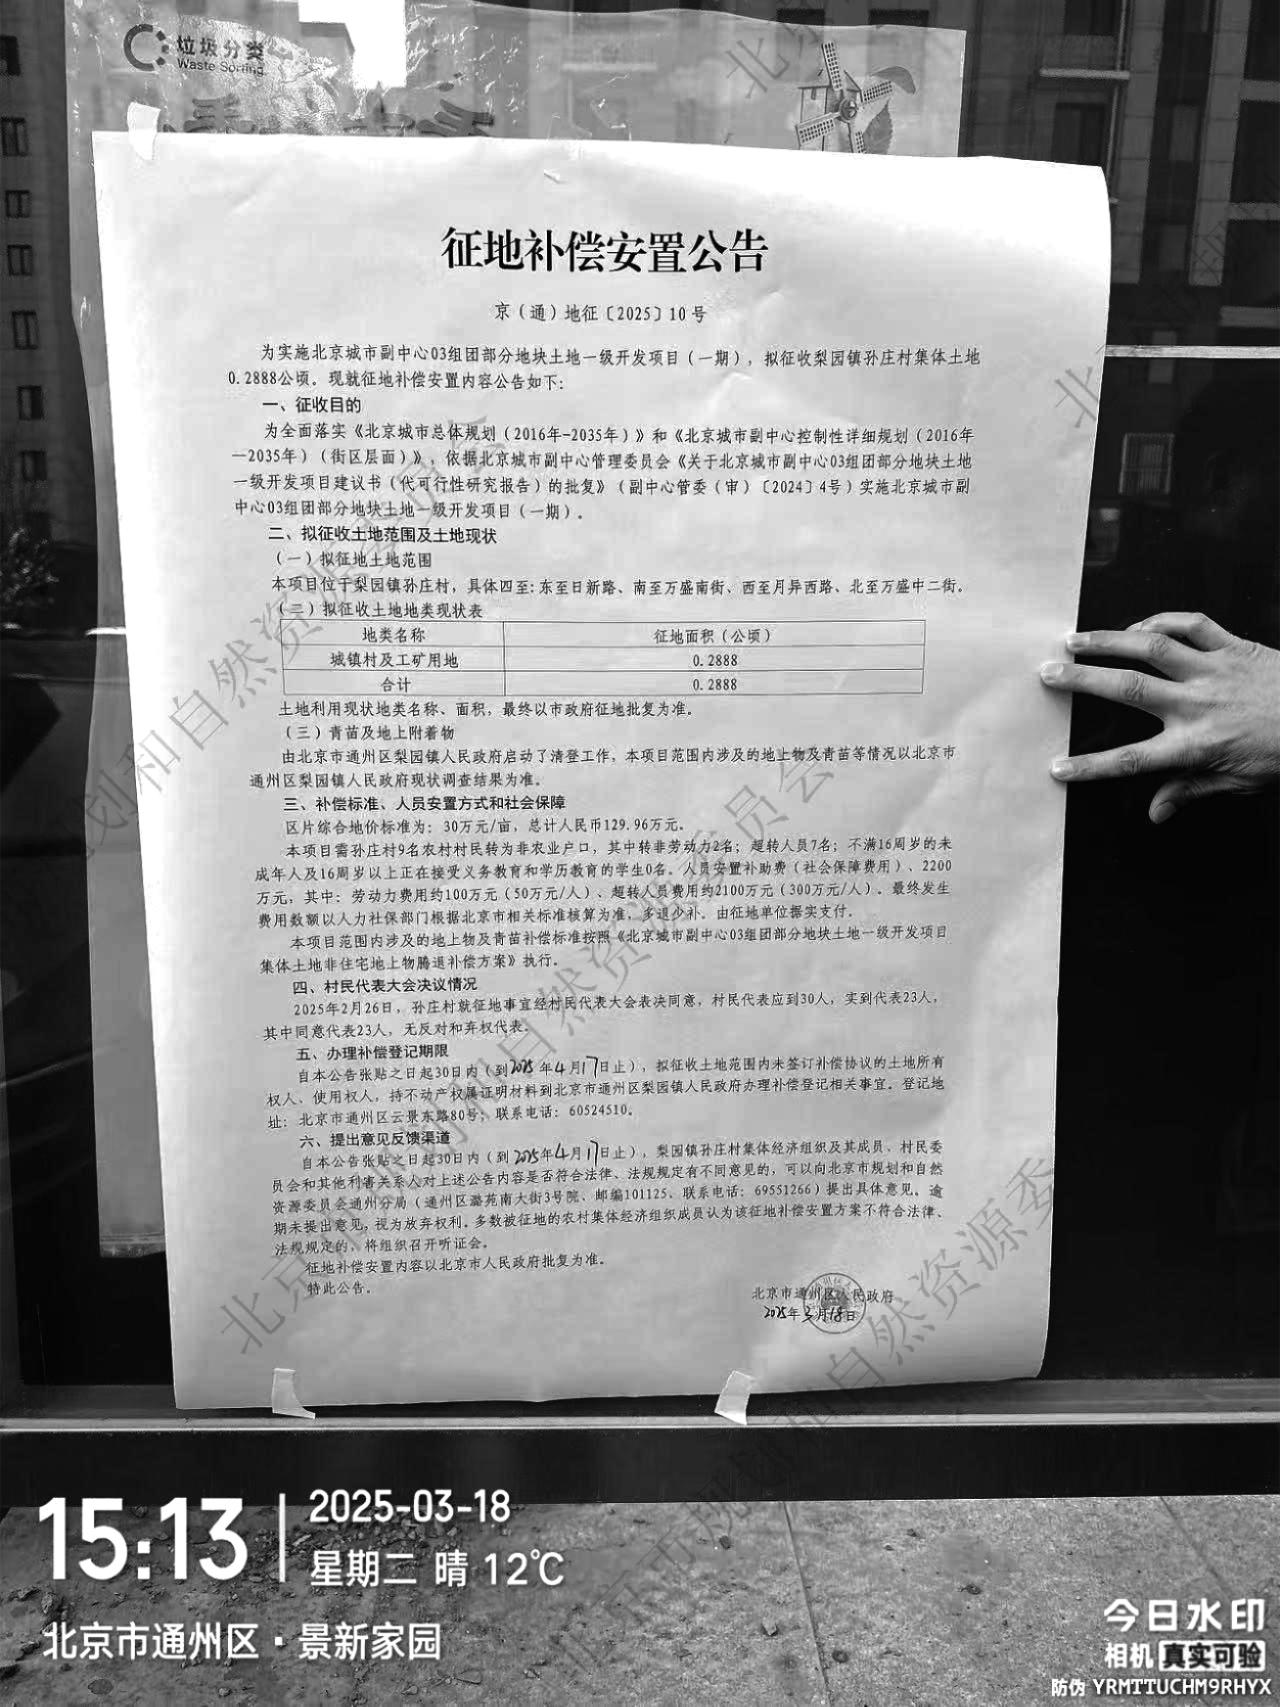 垃圾分类
Waste Sorting
征地补偿安置公告
京（通）地征〔2025〕10号
为实施北京城市副中心03组团部分地块土地一级开发项目（一期），拟征收梨园镇孙庄村集体土地
0.2888公顷。现就征地补偿安置内容公告如下：
一、征收目的
为全面落实《北京城市总体规划（2016年-2035年）》和《北京城市副中心控制性详细规划（2016年
—2035年）（街区层面）》，依据北京城市副中心管理委员会《关于北京城市副中心03组团部分地块土地
一级开发项目建议书（代可行性研究报告）的批复》（副中心管委（审）〔2024〕4号）实施北京城市副
中心03组团部分地块土地一级开发项目（一期）。
二、拟征收土地范围及土地现状
（一）拟征地土地范围
本项目位于梨园镇孙庄村，具体四至：东至日新路、南至万盛南街、西至月异西路、北至万盛中二街。
（二）拟征收土地地类现状表
地类名称 征地面积（公顷）
城镇村及工矿用地 0.2888
合计 0.2888
土地利用现状地类名称、面积，最终以市政府征地批复为准。
（三）青苗及地上附着物
由北京市通州区梨园镇人民政府启动了清登工作，本项目范围内涉及的地上物及青苗等情况以北京市
通州区梨园镇人民政府现状调查结果为准。
三、补偿标准、人员安置方式和社会保障
区片综合地价标准为：30万元/亩，总计人民币129.96万元。
本项目需孙庄村9名农村村民转为非农业户口，其中转非劳动力2名；超转人员7名；不满16周岁的未
成年人及16周岁以上正在接受义务教育和学历教育的学生0名。人员安置补助费（社会保障费用）、2200
万元，其中：劳动力费用约100万元（50万元/人）、超转人员费用约2100万元（300万元/人）。最终发生
费用数额以人力社保部门根据北京市相关标准核算为准，多退少补。由征地单位据实支付。
本项目范围内涉及的地上物及青苗补偿标准按照《北京城市副中心03组团部分地块土地一级开发项目
集体土地非住宅地上物腾退补偿方案》执行。
四、村民代表大会决议情况
2025年2月26日，孙庄村就征地事宜经村民代表大会表决同意，村民代表应到30人，实到代表23人，
其中同意代表23人，无反对和弃权代表。
五、办理补偿登记期限
自本公告张贴之日起30日内（到2025年4月17日止），拟征收土地范围内未签订补偿协议的土地所有
权人、使用权人，持不动产权属证明材料到北京市通州区梨园镇人民政府办理补偿登记相关事宜。登记地
址：北京市通州区云景东路80号；联系电话：60524510。
六、提出意见反馈渠道
自本公告张贴之日起30日内（到2025年4月17日止），梨园镇孙庄村集体经济组织及其成员、村民委
员会和其他利害关系人对上述公告内容是否符合法律、法规规定有不同意见的，可以向北京市规划和自然
资源委员会通州分局（通州区潞苑南大街3号院、邮编101125、联系电话：69551266）提出具体意见。逾
期未提出意见，视为放弃权利。多数被征地的农村集体经济组织成员认为该征地补偿安置方案不符合法律、
法规规定的，将组织召开听证会。
征地补偿安置内容以北京市人民政府批复为准。
特此公告。
北京市通州区人民政府
2025年3月18日
15:13
2025-03-18
星期二 晴 12℃
北京市通州区·景新家园
今日水印
相机 真实可验
防伪 YRMTTUCHM9RHYX